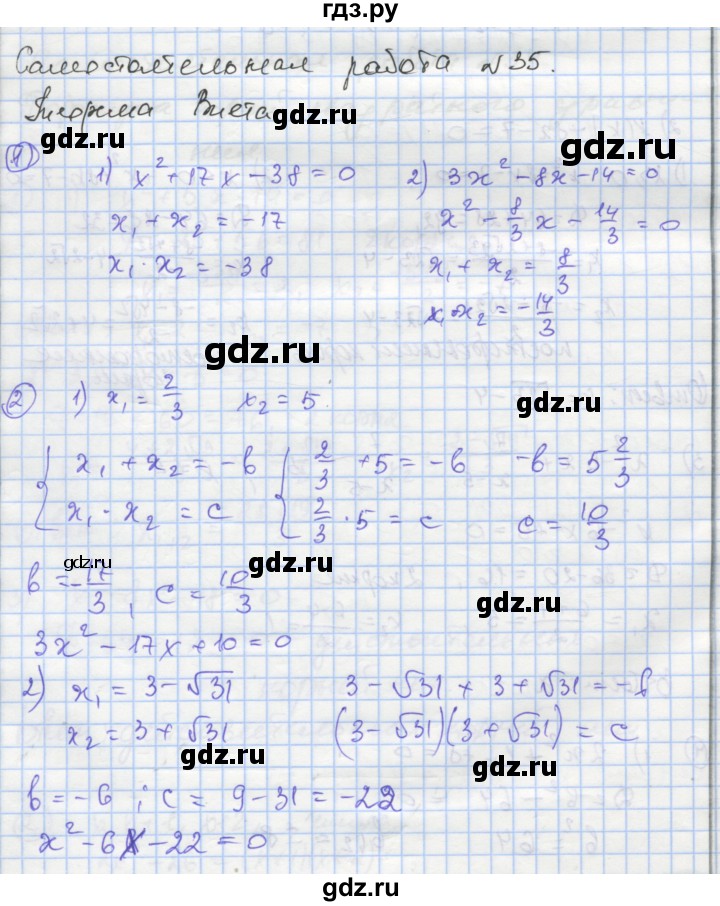 гдз.ру
Самостоятельная работа №35.
Теорема Виета
gdz.ru
gdz.ru
① 1) x² + 17x − 38 = 0
x₁ + x₂ = −17
x₁ · x₂ = −38
2) 3x² − 8x − 14 = 0
x² − 8/3 x − 14/3 = 0
x₁ + x₂ = 8/3
x₁ x₂ = −14/3
gdz.ru
gdz.ru
gdz.ru
② 1) x₁ = 2/3 x₂ = 5
gdz.ru
{ x₁ + x₂ = −b { 2/3 + 5 = −b −b = 5 2/3
x₁ · x₂ = c 2/3 · 5 = c c = 10/3
gdz.ru
gdz.ru
b = −17/3 , c = 10/3
gdz.ru
3x² − 17x + 10 = 0
2) x₁ = 3 − √31 3 − √31 + 3 + √31 = −b
x₂ = 3 + √31 (3 − √31)(3 + √31) = c
gdz.ru
gdz.ru
b = −6 ; c = 9 − 31 = −22
x² − 6x − 22 = 0
gdz.ru
gdz.ru
gdz.ru